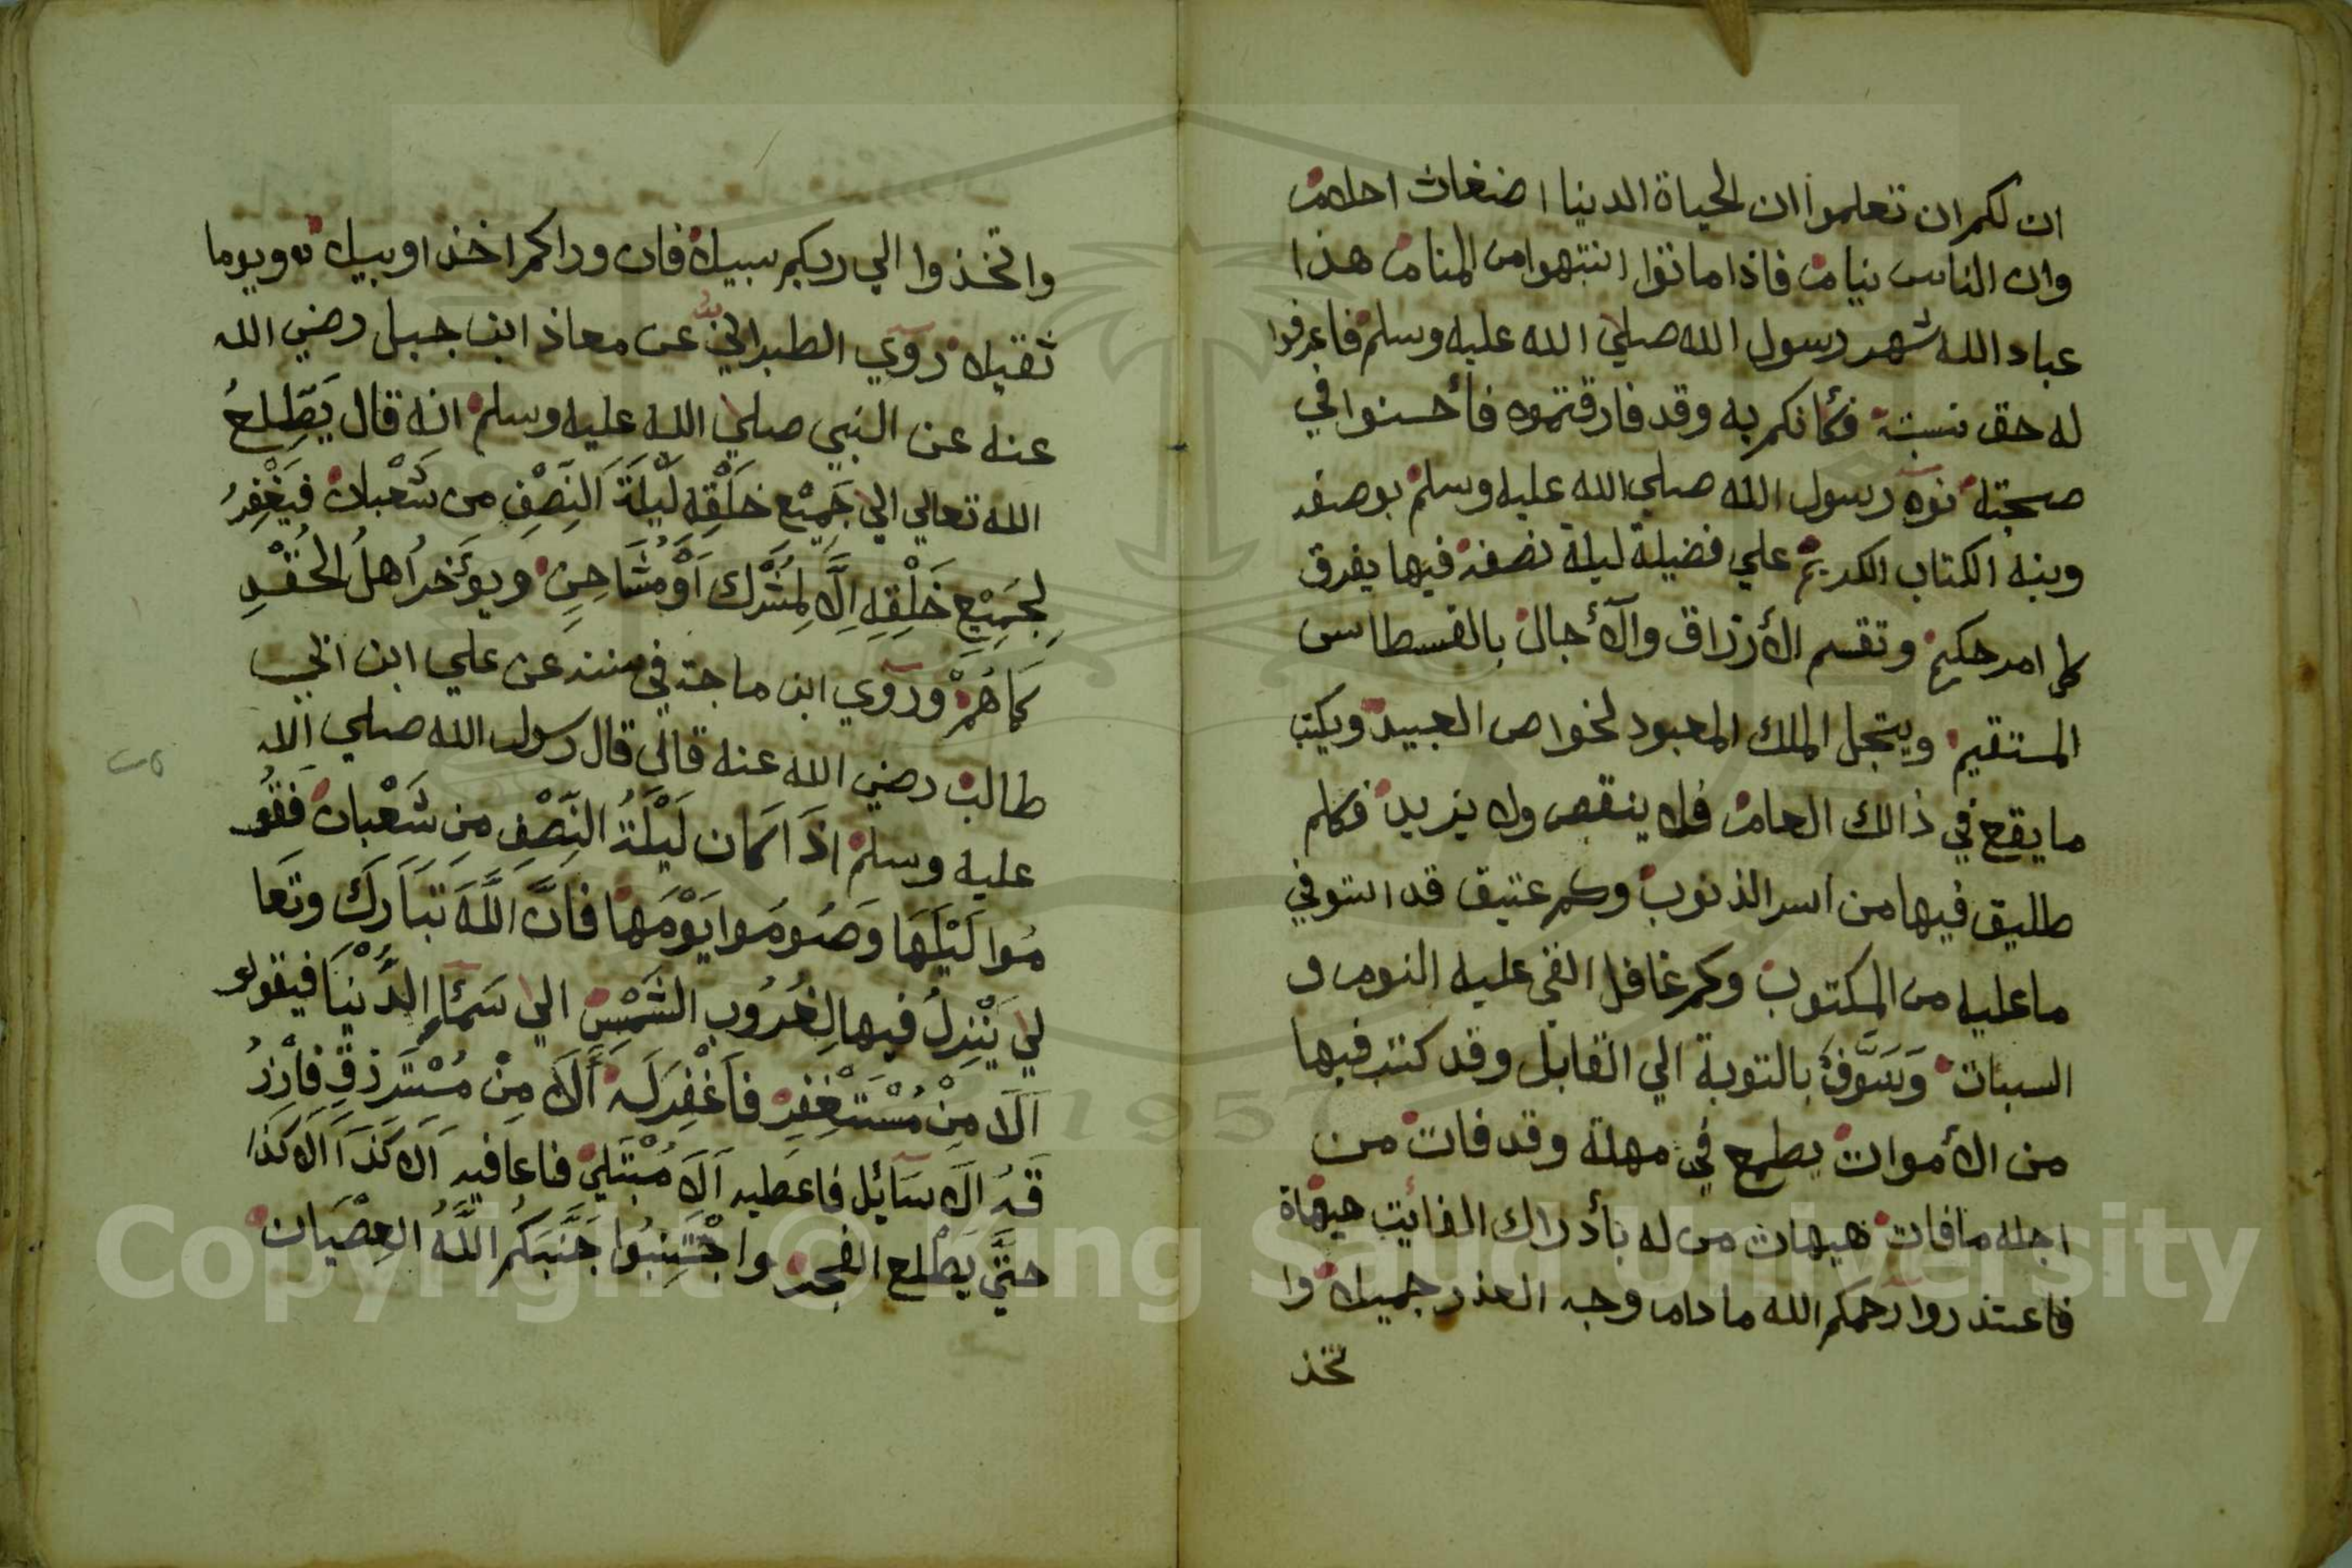 ان لكم ان تعلموا ان الحياة الدنيا اضغاث احلام
وان الناس نيام فاذا ماتوا انتبهوا من المنام هذا
عباد الله شهر رسول الله صلي الله عليه وسلم فاعرفوا
له حق نسبته فكأنكم به وقد فارقتموه فأحسنوا في
صحبته نوه رسول الله صلي الله عليه وسلم بوصفه
ونبه الكتاب الكريم علي فضيلة ليلة نصفه فيها يفرق
كل امر حكيم وتقسم الأرزاق والآجال بالقسطاس
المستقيم ويتجل الملك المعبود لخواص العبيد ويكتب
ما يقع في ذالك العام فلا ينقص ولا يزيد فكلم
طليق فيها من اسر الذنوب وكم عتيق قد استوفي
ما عليه من المكتوب وكم غافل القي عليه النوم و
السبات وَسَوَّفَ بالتوبة الي القابل وقد كتب فيها
من الأموات يطمع في مهلة وقد فات من
اجله ما فات هيهات من له بأدراك الفايت هيهاة
فاعتذروا رحمكم الله ما دام وجه العذر جميلا وا
تخذ
واتخذوا الي ربكم سبيلا فان وراكم اخذا وبيلا ويوما
ثقيلا روي الطبراني عن معاذ ابن جبل رضي الله
عنه عن النبي صلي الله عليه وسلم انه قال يَطَّلِعُ
الله تعالي الي جَمِيْع خَلْقِهِ لَيْلَةَ النِّصْفِ من شَعْبان فَيَغْفِرُ
لِجَمِيْعِ خَلْقِهِ اِلَّا لِمُشْرِك اَوْ مُشَاحِنِ ويؤَخر اُهلُ الحُقْدِ
كَمَا هُمْ وروي ابن ماجة في سننه عن علي ابن ابي
طالب رضي الله عنه قال قال رسول الله صلي الله
عليه وسلم اذَا كان لَيْلَةُ النِّصْفِ مِنْ شَعْبان فَقُو
مُوا لَيْلَهَا وَصُومُوا يَوْمَهَا فَانَّ اللَّهَ تَبَارَكَ وتَعَا
لي يَنْزِلُ فيها لِغُرُوبِ الشَّمْسِ الي سَمَاءِ الدُّنْيَا فيقول
اَلَا مِنْ مُسْتَغْفِرِ فاَغْفِرَ لَهُ اَلَا مِنْ مُسْتَرْزِقِ فاَرْزُ
قَهُ الَا سَائِل فاعطيه اَلَا مُبْتَلي فاعافيه اَلَا كَذَا اَلَا كَذَا
حتَّي يَطْلع الفجر واجْتَنِبُوا جَنَّبَكُمُ اللَّهُ العِصْيَان
Copyright © King Saud University
1957